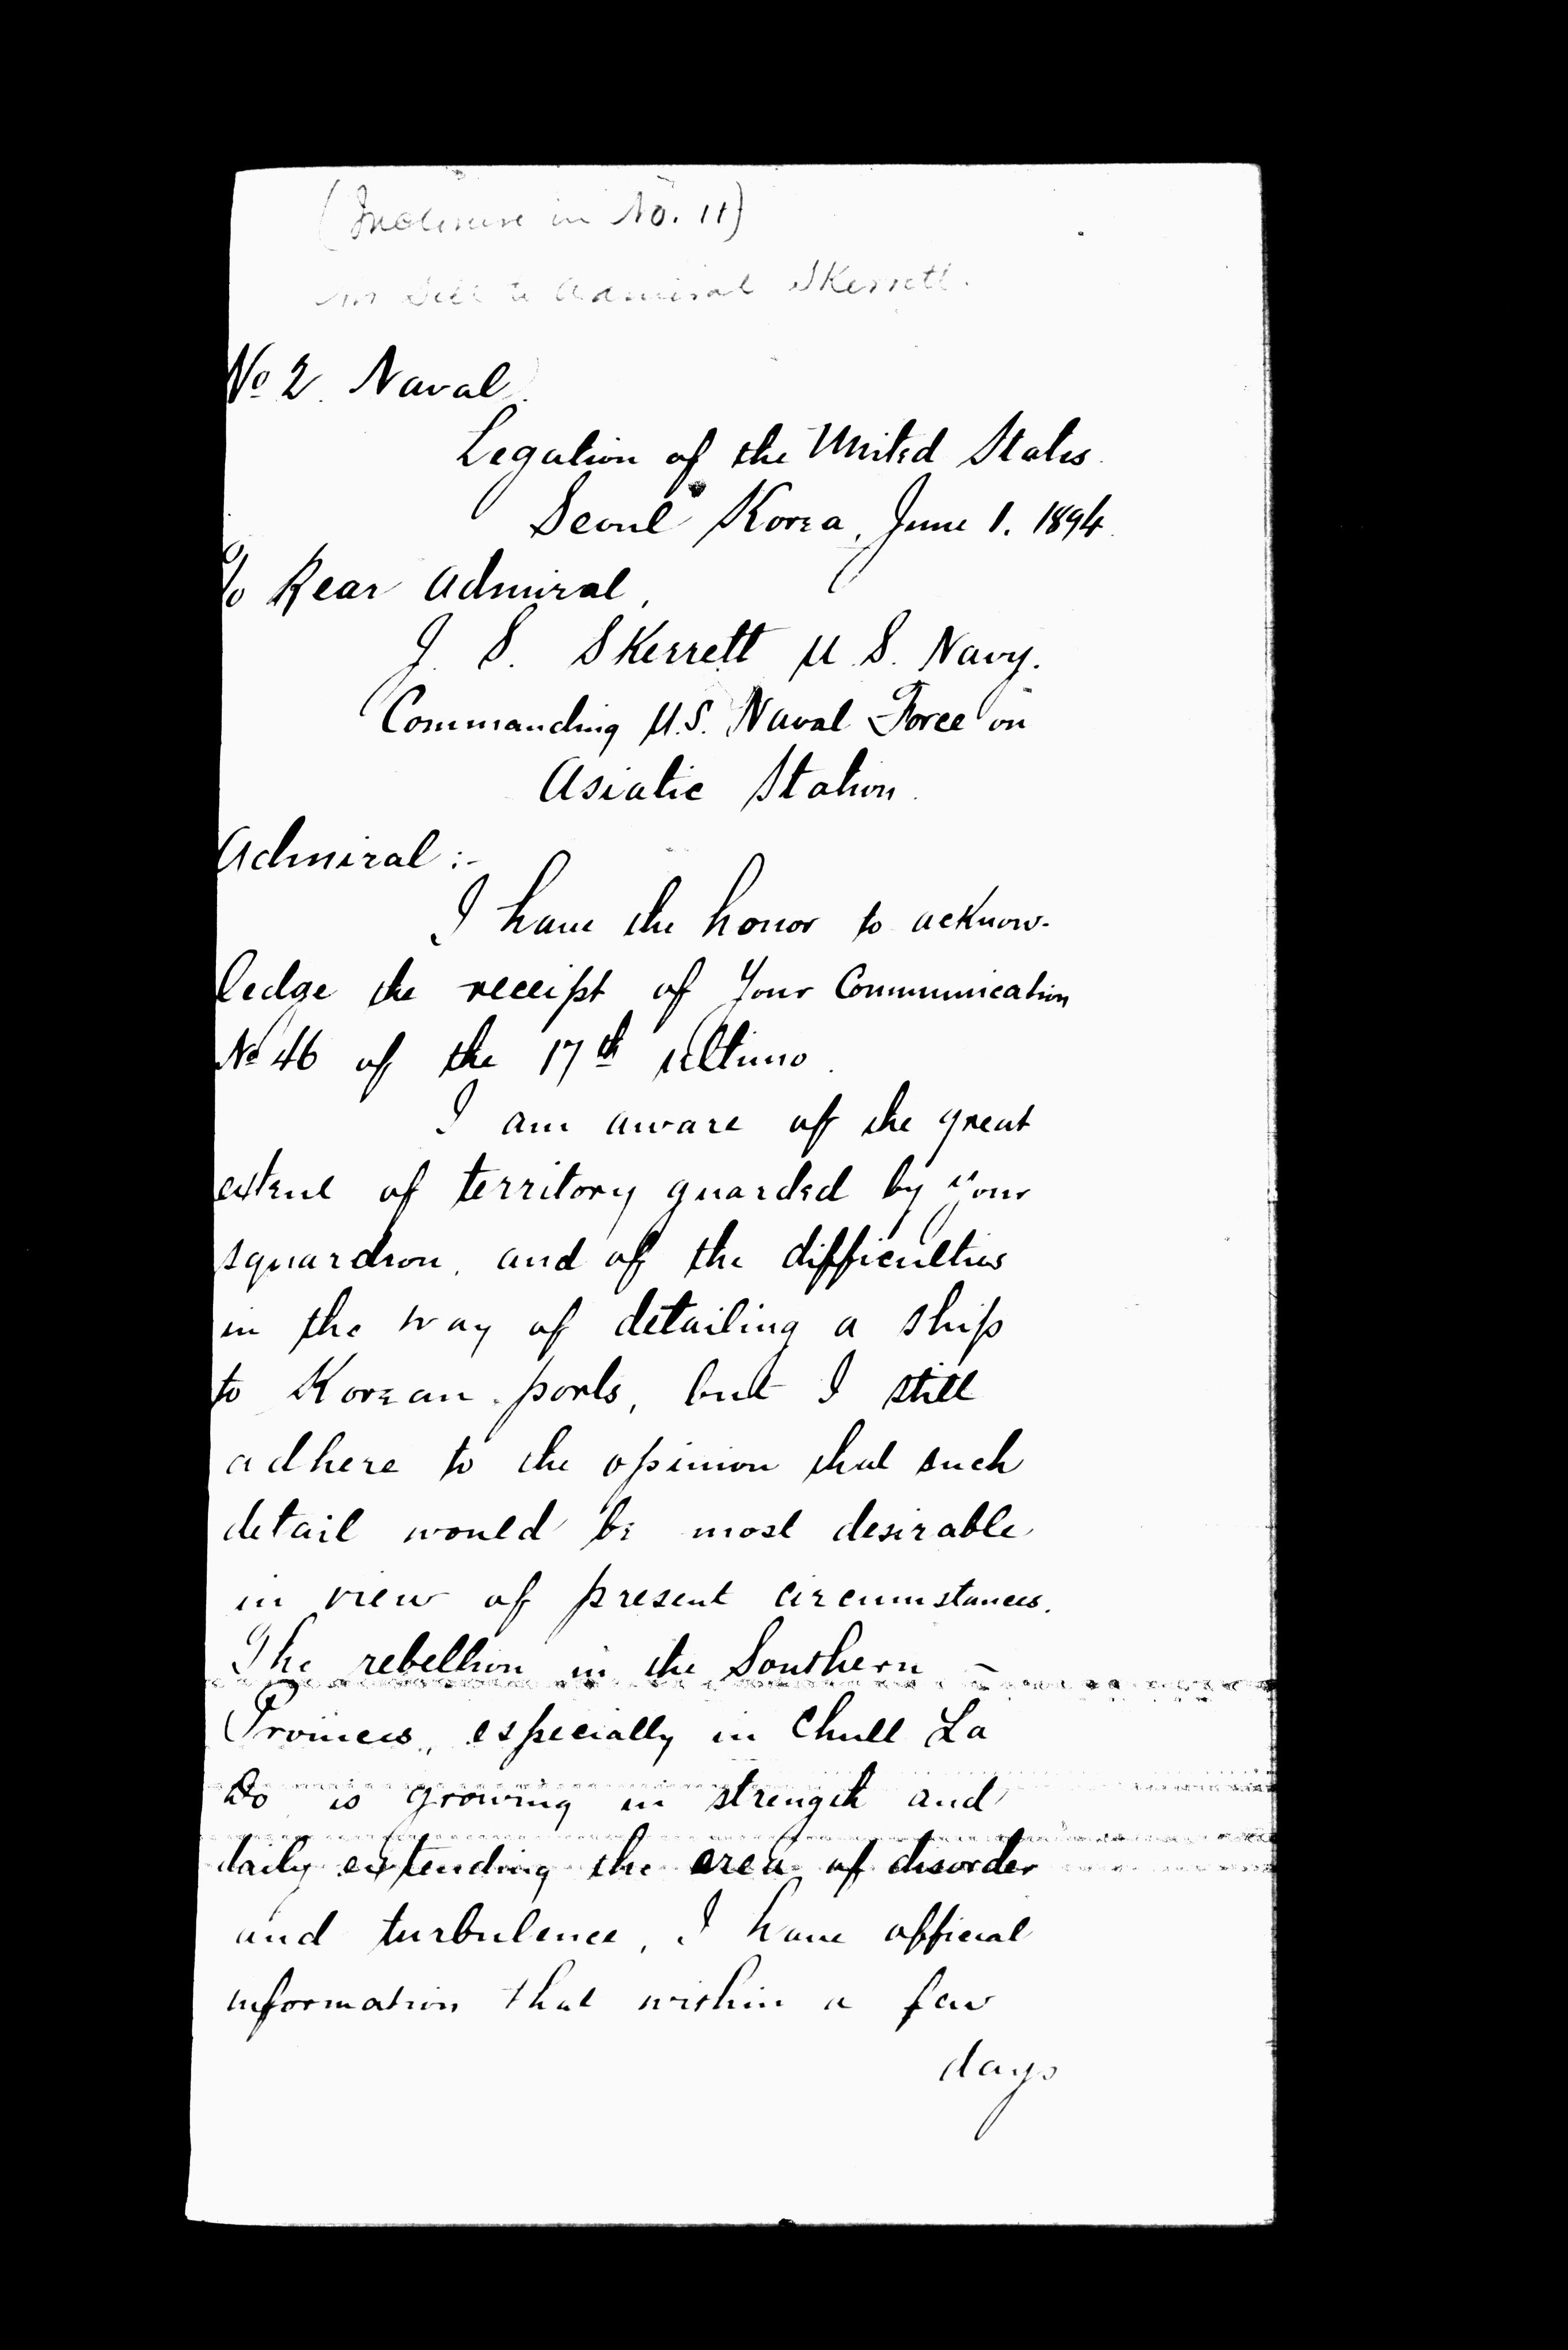 (Inclosure in No. 11)
Mr Sill to Admiral Skerrett.
No 2 Naval.
Legation of the United States.
Seoul Korea, June 1. 1894.
To Rear Admiral,
J. S. Skerrett U. S. Navy.
Commanding U.S. Naval Force on
Asiatic Station.
Admiral :-
I have the honor to acknow-
ledge the receipt of Your Communication
No 46 of the 17th ultimo.
I am aware of the great
extent of territory guarded by Your
squardron, and of the difficulties
in the way of detailing a ship
to Korean ports, but I still
adhere to the opinion that such
detail would be most desirable
in view of present circumstances.
The rebellion in the Southern
Provinces, especially in Chull La
Do is growing in strength and
daily extending the area of disorder
and turbulence, I have official
information that within a few
days